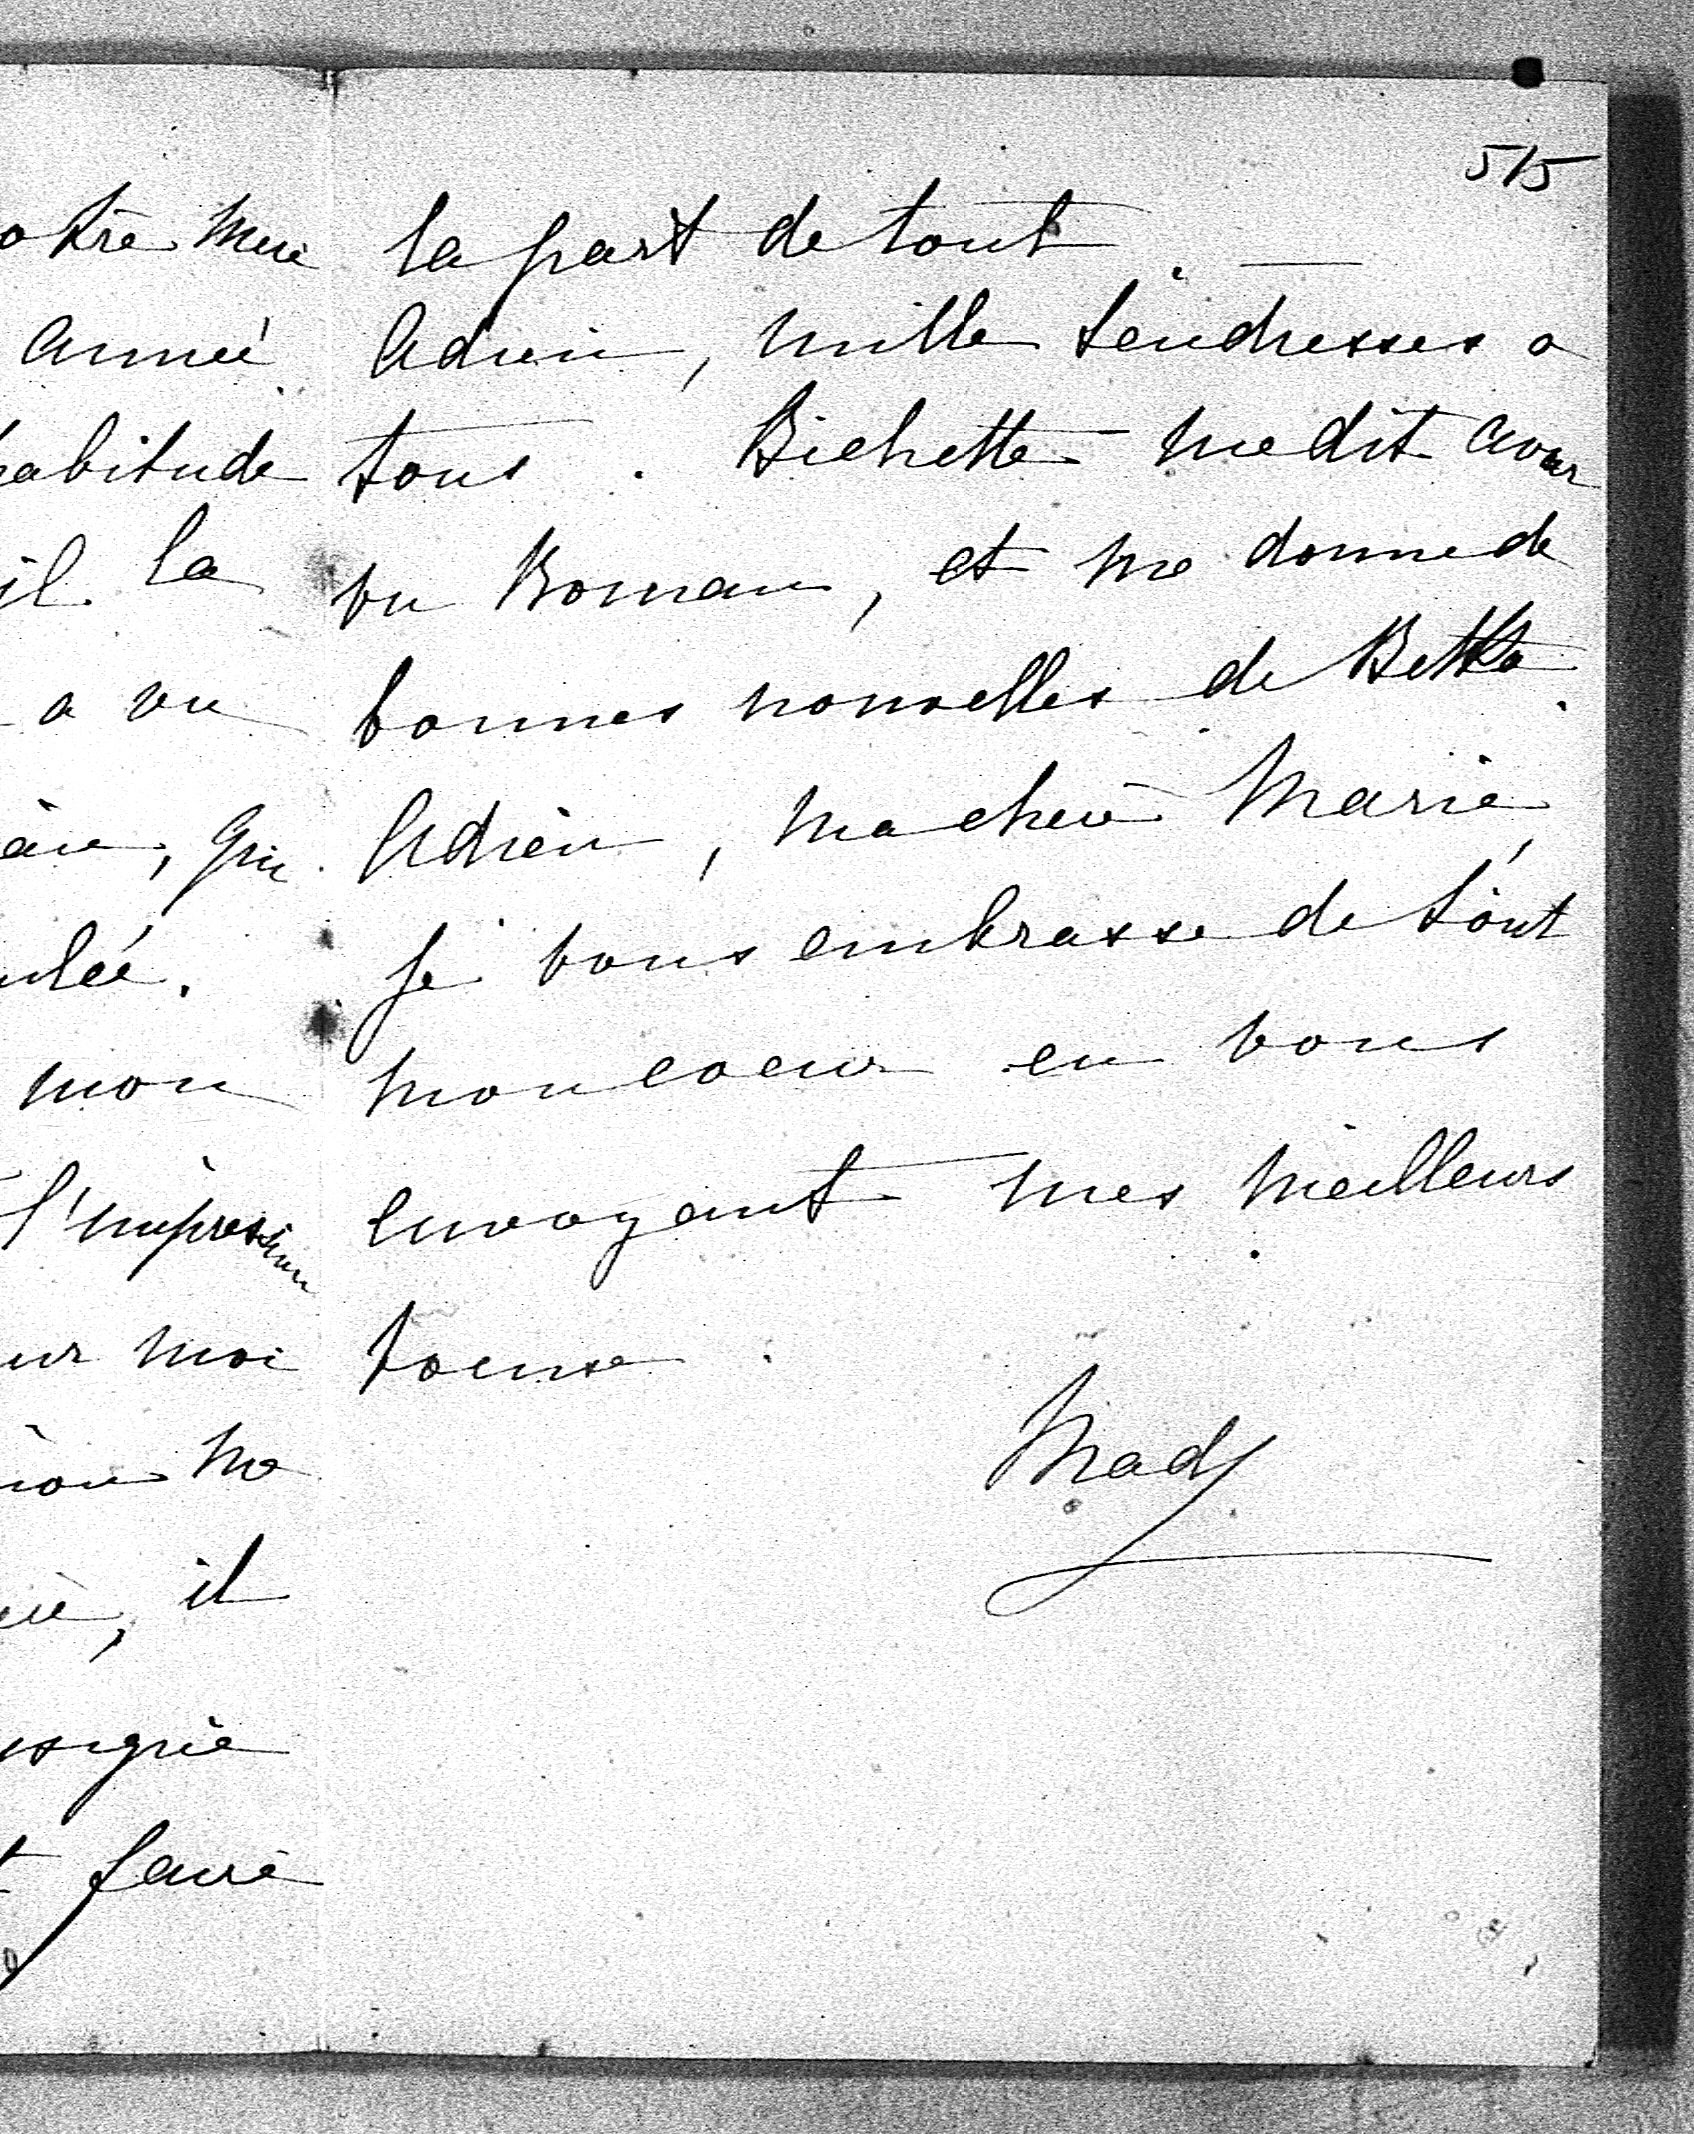 515
otre mere
année
habitude
il la
a vu
qui
ulée.
mon
l'impression
ur moi
me
il
faire
la part de tout. —
Adieu, mille tendresses a
tous. Bichette me dit avoir
vu Roman, et me donne de
bonnes nouvelles de Betka.
Adieu, ma chere Marie,
Je vous embrasse de tout
mon coeur en vous
envoyant mes meilleurs
voeux.
Mady